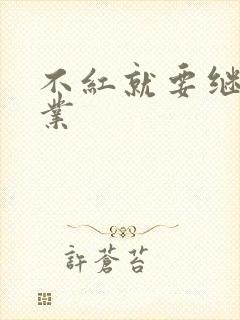 不紅就要继
業
許蒼苔